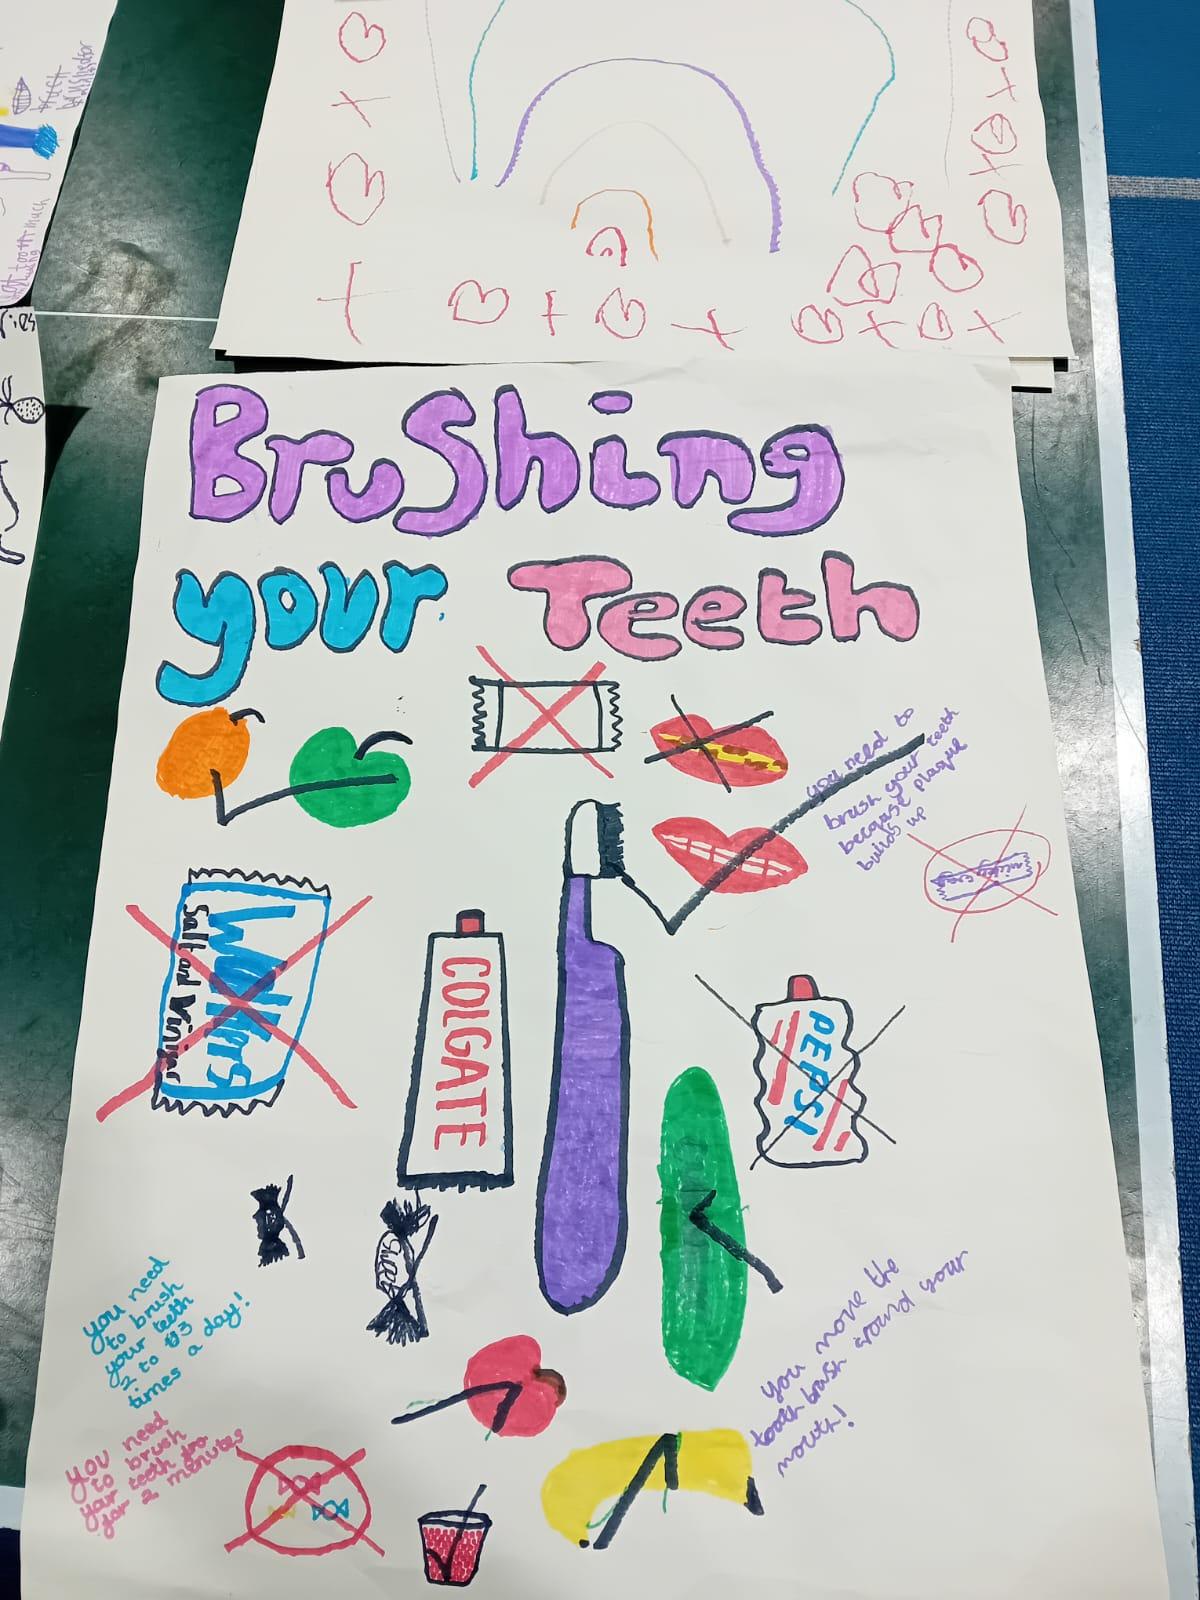 Brushing
your Teeth
you need to
brush your teeth
because plaque
builds up
Walkers
Salt and Viniger
COLGATE
PEPSI
Sweet
you need
to brush
your teeth
2 to 3
times a day!
you need
to brush
your teeth for
for 2 minutes
you move the
tooth brush around your
mouth!